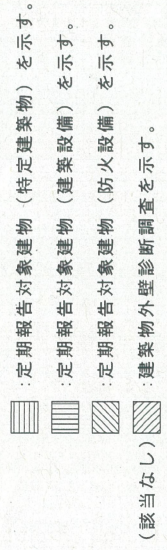 :定期報告対象建物（特定建築物）を示す。
:定期報告対象建物（建築設備）を示す。
:定期報告対象建物（防火設備）を示す。
(該当なし) :建築物外壁診断調査を示す。